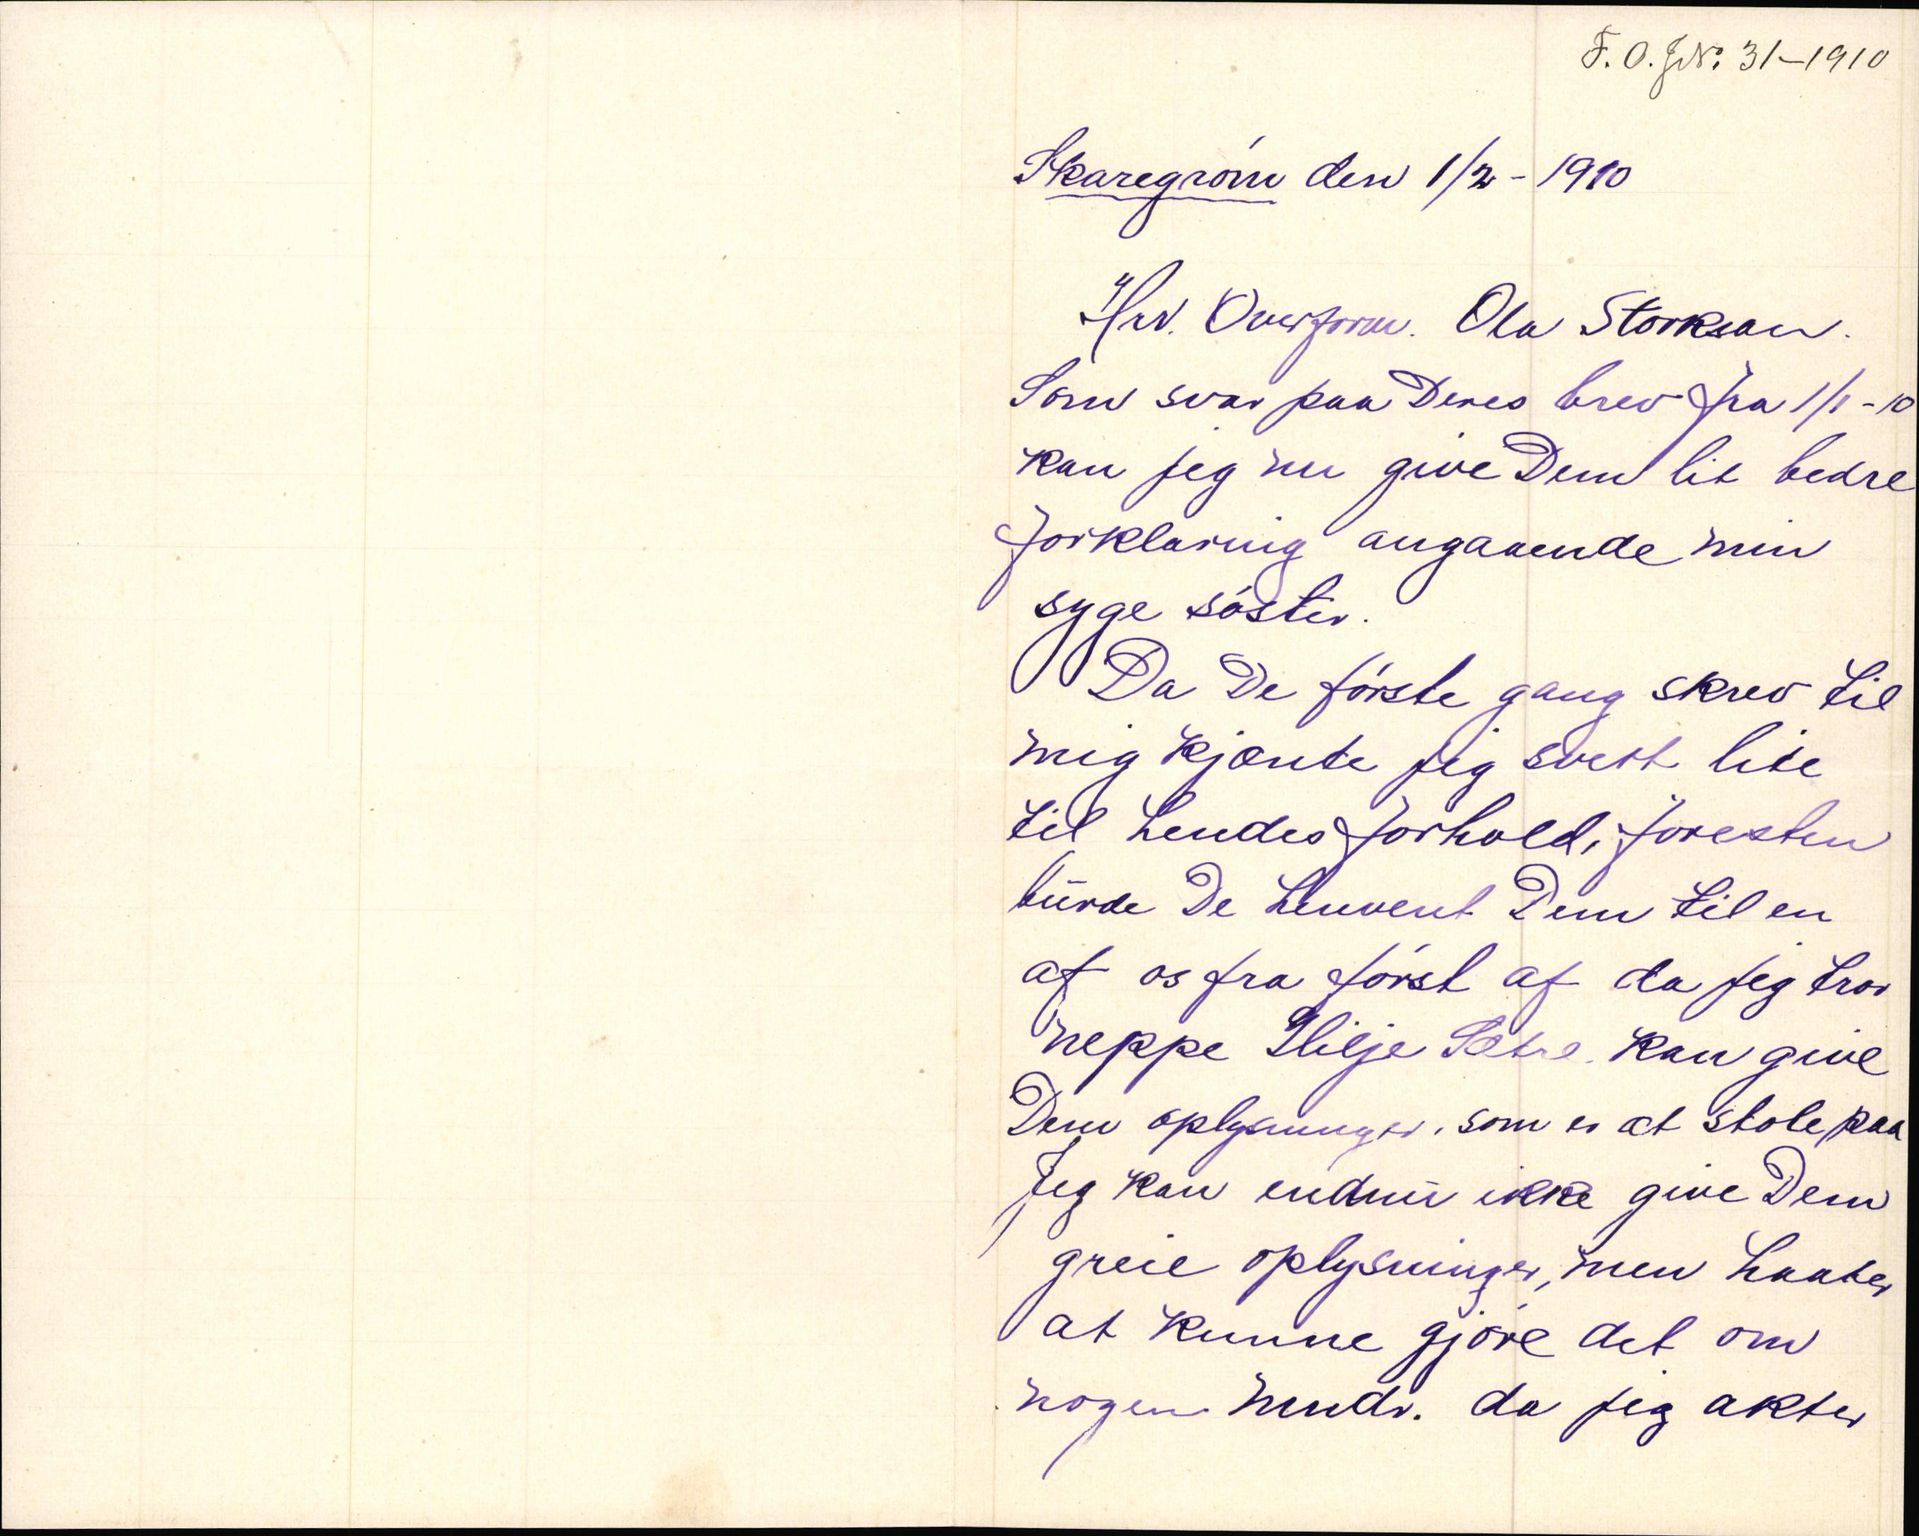 F. O. JNo: 31-1910
Skaregrøm den 1/2 - 1910
Hr. Overform. Ola Storksan.
Som svar paa Deres brev fra 1/1-10
kan jeg nu give Dem lit bedre
forklaring angaaende min
syge søster.
Da De første gang skrev til
mig kjænte jeg svert lite
til hendes forhold, foresten
burde De henvent Dem til en
af os fra først af da jeg tror
neppe Silje Sætre kan give
Dem oplysninger, som er at stole paa
Jeg kan endnu ikke give Dem
greie oplysninger, men haaber
at kunne gjøre det om
nogen mndr. da jeg akter